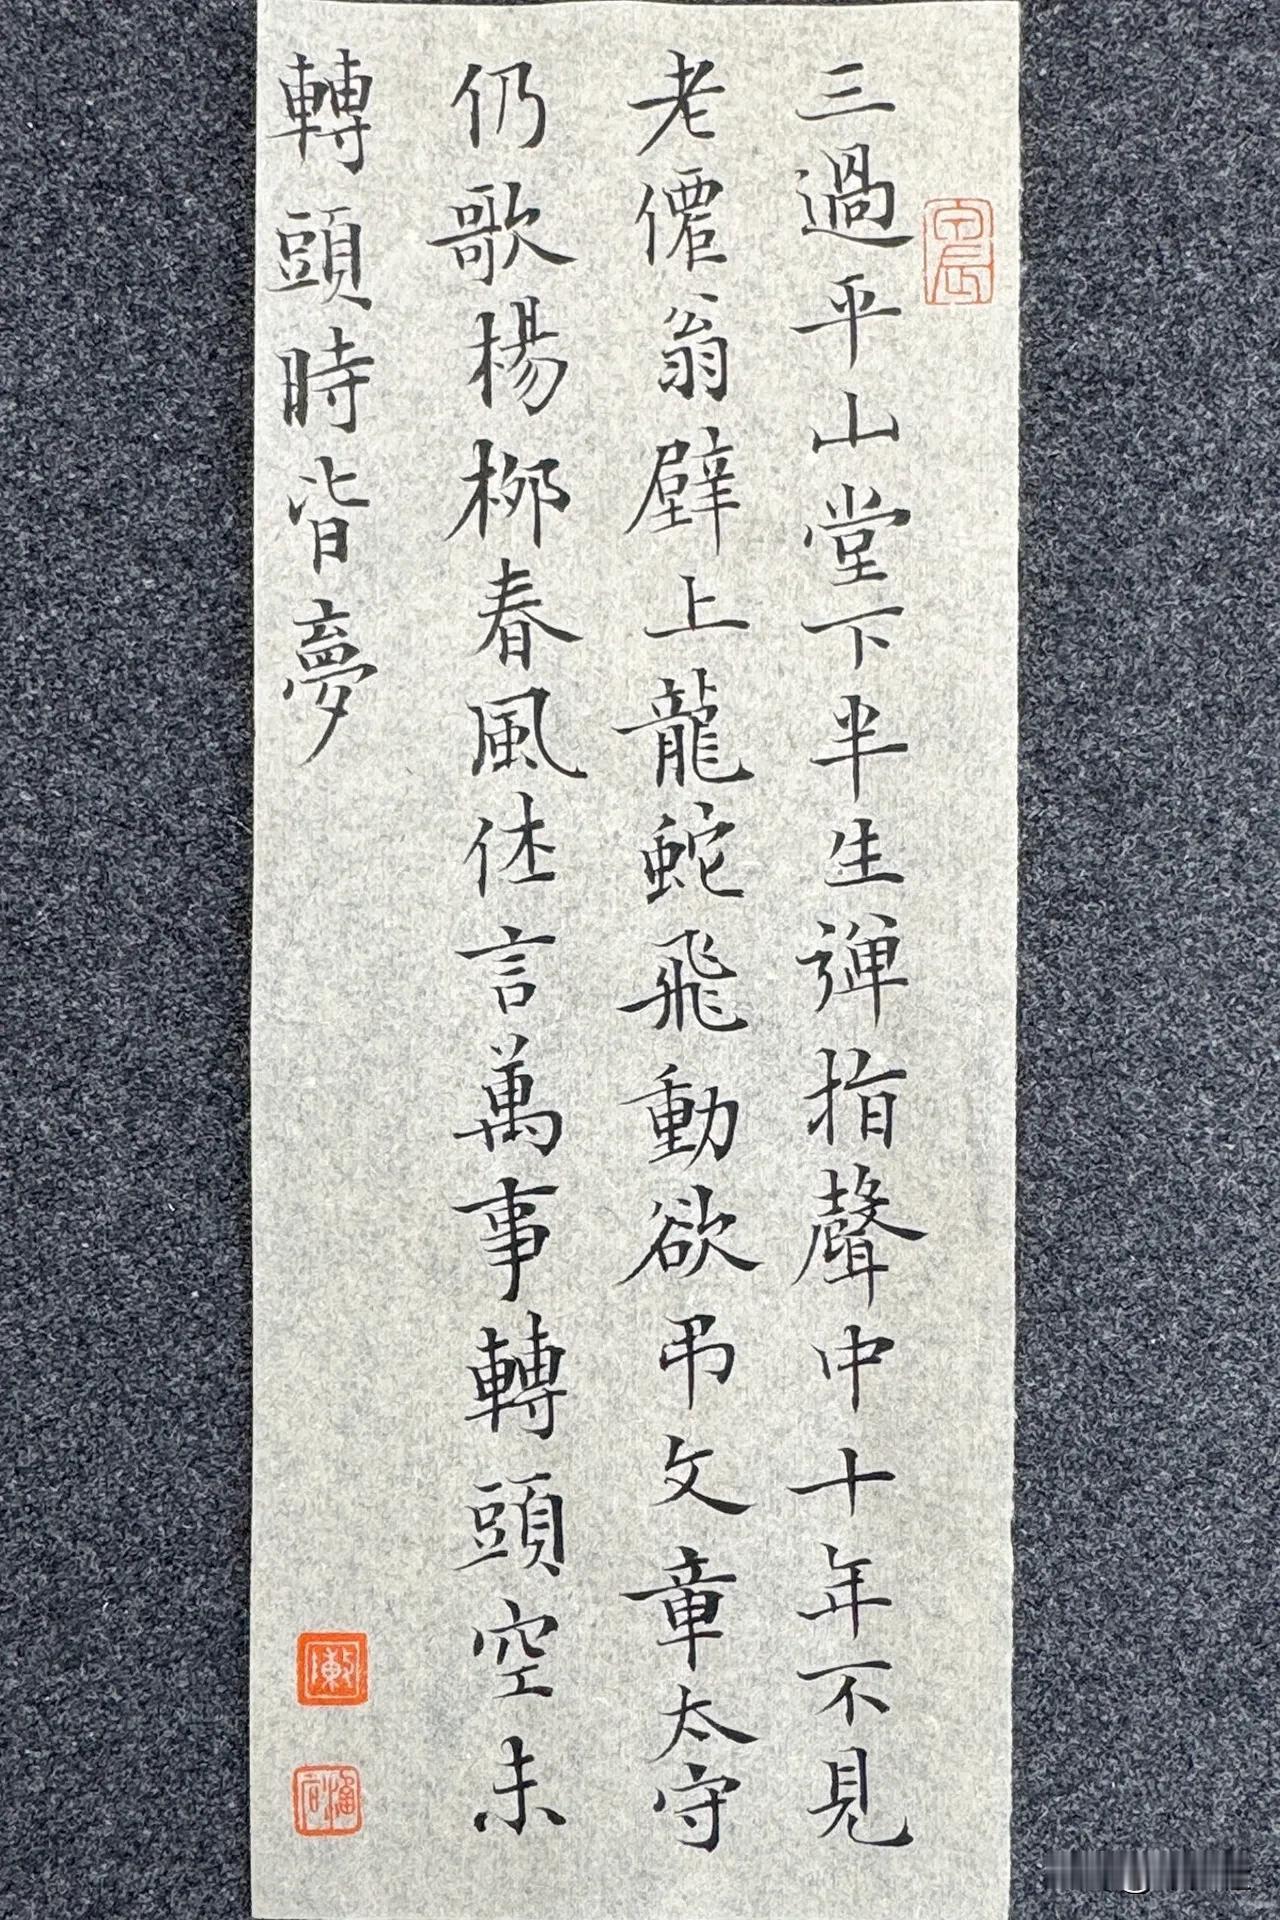 三過平山堂下半生彈指聲中十年不見
老僊翁壁上龍蛇飛動欲弔文章太守
仍歌楊栁春風休言萬事轉頭空未
轉頭時皆夢